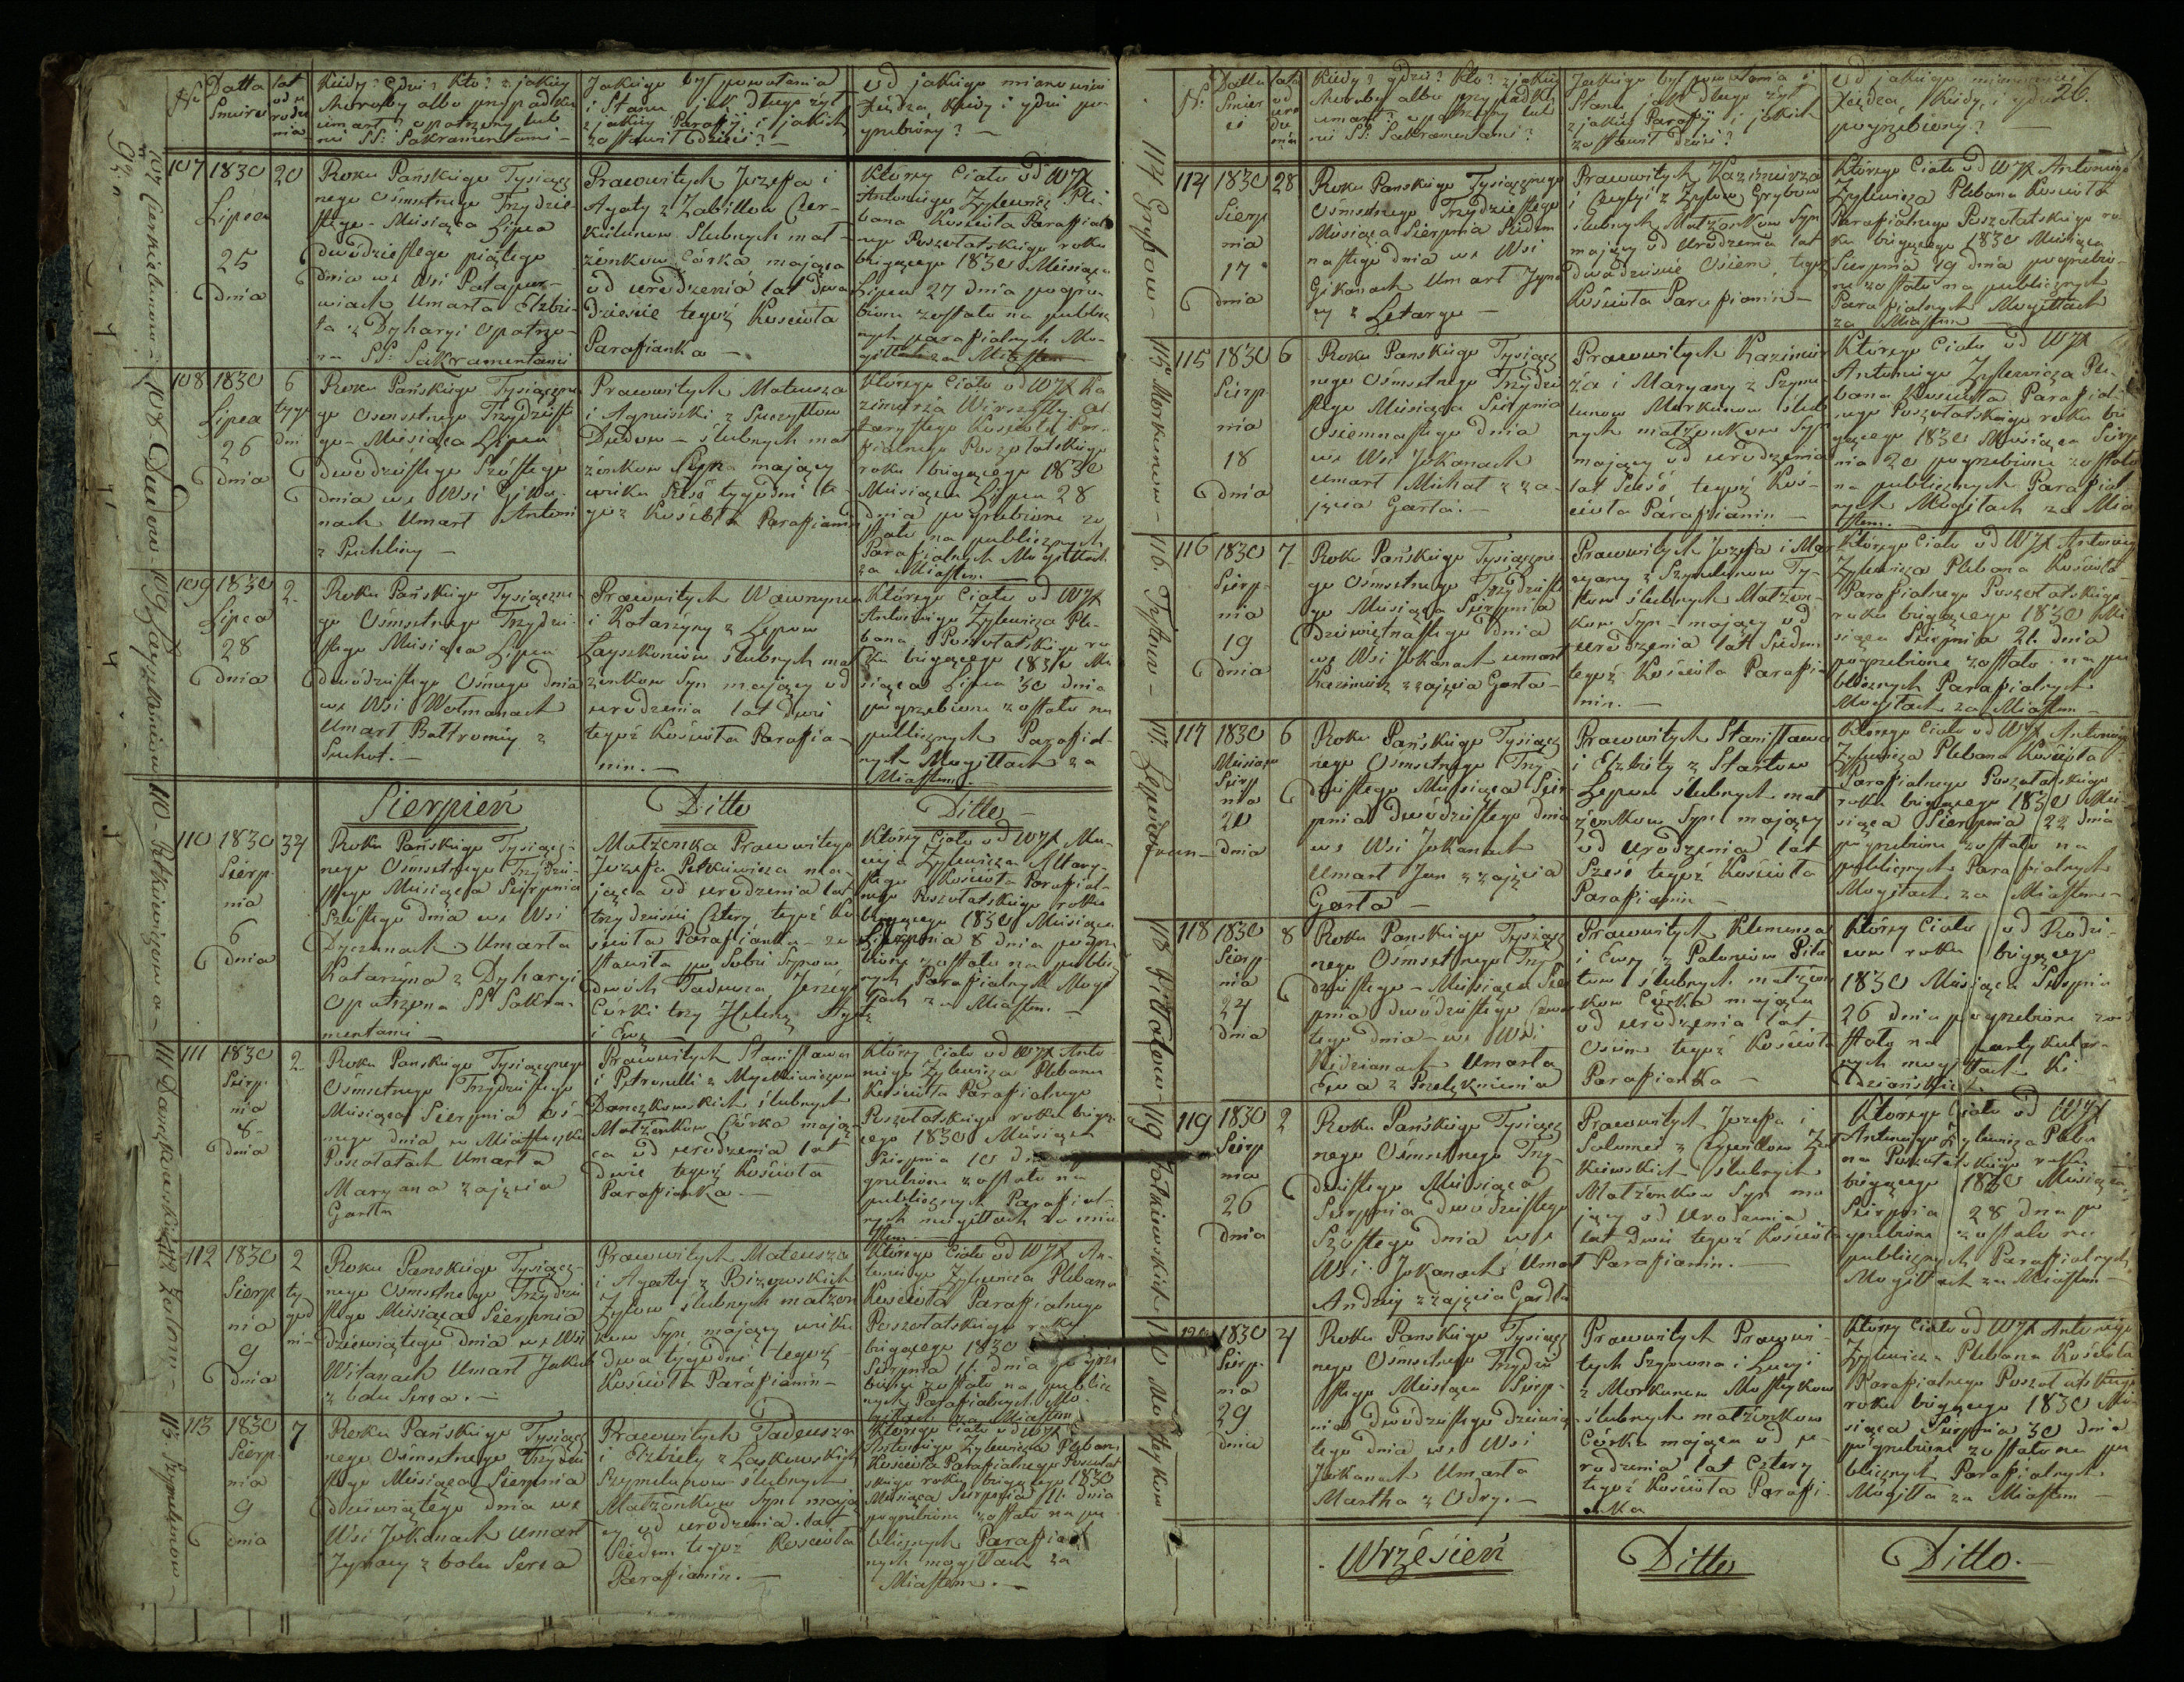 №
Datta
Smierci
lat
od u
rodze
nia
Kiedy? Gdzie? Kto? z jakiey
choroby albo przypadku
umarł? opatrzony lub
nie SS: Sakramentami
Jakiego był powołania
i Stanu jak długo żył
z jakiey Parafii i jakich
zostawił dzieci? —
od jakiego mianowicie
Xiędza, kiedy i gdzie po
grzebiony? —
107
1830
Lipca
25
dnia
20
Roku Pańskiego Tysiącz
nego Ośmsetnego Trzydzie
stego Miesiąca Lipca
dwódziestego piątego
dnia we Wsi
umarła Elżbie
ta z Dyharyi Opatrzo
na SS: Sakramentami
Prawowitych Jozefa i
Agaty z Zabiłłow Czer
kielunow Slubnych mał
żonkow Córka maiąca
od urodzenia lat Dwa
dzieście tegoż Kościoła
Parafianka —
Którey Ciało od WJX
Antoniego Zylewicz Ple
bana Kościoła Parafial
nego Poszołatskiego roku
bieżącego 1830 Miesiąca
Lipca 27 dnia pogrze
bione zostało na public
nych parafialnych Mo
giłłach za Miastem
108
1830
Lipca
26
dnia
6
tygo
dni
Roku Pańskiego Tysiączne
go Osmsetnego Trzydzieste
go Miesiąca Lipca
dwodziestego Szóstego
dnia we Wsi Gika
nach Umarł Antoni
z Puchliny —
Prawowitych Mateusza
i Agnieszki z
Dudow — ślubnych mał
żonkow Syn maiący
wieku Sześć tygodni te
goż Kościoła Parafianin
Którego Ciało od WJX Ka
zimierza
tarystego Kościoła Para
fialnego Poszołatskiego
roku bieżącego 1830
Miesiąca Lipca 28
dnia pogrzebione zo
stało na publicznych
Parafialnych Mogiłłach
za Miastem
109
1830
Lipca
28
dnia
2
Roku Pańskiego Tysiączne
go Osmsetnego Trzydzie
stego Miesiąca Lipca
dwódziestego Osmego dnia
we Wsi Wołmanach
Umarł Bałtromiey z
Suchot. —
Prawowitych Wawrzynca
i Katarzyny z Lepow
Layszkoniow ślubnych mał
żonkow Syn maiący od
urodzenia lat dwie
tegoż Kościoła Parafia
nin. —
Którego Ciało od WJX
Antoniego Zylewicza Ple
bana Poszołatskiego ro
ku bieżącego 1830 Mie
siąca Lipca 30 dnia
pogrzebione zostało na
publicznych Parafial
nych Mogiłłach za
Miastem. —
Sierpień
Ditto
Ditto —
110
1830
Sierp
nia
6
dnia
34
Roku Pańskiego Tysiącz
nego Osmsetnego Trzydzie
stego Miesiąca Sierpnia
Szóstego dnia we Wsi
Umarła
Katarzyna z Dyharyi
Opatrzona SS Sakra
mentami —
Małżonka Prawowitego
Jozefa Petkiewicza ma
jąca od urodzenia lat
trzydzieści Cztery tegoż Ko
ścioła Parafianka — zo
stawiła po Sobie Synow
dwóch Tadeusza Jerzego
Córki trzy Helenę
i Ewę
Którey Ciało od WJX
Zylewicza Altary
stego Kościoła Parafial
nego Poszołatskiego roku
bieżącego 1830 Miesiąca
Sierpnia 8 dnia pogrze
bione zostało na public
nych Parafialnych Mogi
łach za Miastem. —
111
1830
Sierp
nia
8
dnia
2
Roku Pańskiego Tysiącznego
Ośmsetnego Trzydziestego
Miesiąca Sierpnia ós
mego dnia w Miasteczku
Poszołatach Umarła
Maryana z zajęcia
Garła
Prawowitych Stanisława
i Petronelli z Myckiewiczow
Danczkowskich ślubnych
Małżonkow Córka mają
ca od urodzenia lat
dwie tegoż Kościoła
Parafianka. —
Którey Ciało od WJX Anto
niego Zylewicza Plebana
Kościoła Parafialnego
Poszołatskiego roku bieżą
cego 1830 Miesiąca
Sierpnia 10
grzebione zostało na
publicznych Parafial
nych mogiłłach za mia
stem. —
112
1830
Sierp
nia
9
dnia
2
ty
god
ni
Roku Panskiego Tysiącz
nego Osmsetnego Trzydzie
stego Miesiąca Sierpnia
dziewiątego dnia we Wsi
Witanach Umarł Jakub
z bolu Serca. —
Prawowitych Mateusza
i Agaty z Bizewskich
Zyłow ślubnych małżon
kow Syn maiący wieku
dwa tygodni tegoż
Kościoła Parafianin —
Którego Ciało od WJX An
toniego Zylewicza Plebana
Kościoła Parafialnego
Poszołatskiego roku
bieżącego 1830
Sierpnia 11 dnia pogrze
bione zostało na public
nych Parafialnych Mo
giłłach za Miastem
113
1830
Sierp
nia
9
dnia
7
Roku Pańskiego Tysiącz
nego Ośmsetnego Trzydzie
stego Miesiąca Sierpnia
dziewiątego dnia we
Wsi Jokanach Umarł
Ignacy z bolu Serca
Prawowitych Tadeusza
i Elżbiety z Laskowskich
Szymelunow ślubnych
Małżonkow Syn mają
cy od urodzenia lat
Siedm tegoż Kościoła
Parafianin. —
Którego Ciało od WJX
Antoniego Zylewicza Plebana
Kościoła Parafialnego Poszołat
skiego roku bieżącego 1830
Miesiąca Sierpnia 11 dnia
pogrzebione zostało na pu
blicznych Parafial
nych mogiłłach za
Miastem. —
107 Czerkielunowna — 108 — Dudow — 109 Layszkoniow 110 — Petkiewiczowa — 111 Danczkowskich 112 Zyłow — 113. Szymelunow —
26.
№:
Datta
Śmier
ci
lata
od
uro
dze
nia
Kiedy? gdzie? Kto? z jakiey
choroby albo przypadku
umarł? opatrzony lub
nie SS: Sakramentami?
Jakiego był powołania i
Stanu jak długo żył
z jakiey Parafii i jakich
zostawił dzieci?
Od jakiego mianowicie
Xiędza, Kiedy, i gdzie
pogrzebiony? —
114
1830
Sierp
nia
17
dnia
28
Roku Panskiego Tysiącznego
Ośmsetnego Trzydziestego
Miesiąca Sierpnia Siedm
nastego dnia we Wsi
Gikanach Umarł Igna
cy z Letargu —
Prawowitych Kazimierza
i z Zyłow Grybow
ślubnych Małżonkow Syn
mający od Urodzenia lat
dwadzieście Osiem, tegoż
Kościoła Parafianin —
Którego Ciało od WJX Antoniego
Zylewicza Plebana Kościoła
Parafialnego Poszołatskiego ro
ku bieżącego 1830 Miesiąca
Sierpnia 19 dnia pogrzebio
ne zostało na publicznych
Parafialnych Mogiłłach
za Miastem
115
1830
Sierp
nia
18
dnia
6
Roku Panskiego Tysiącz
nego Ośmsetnego Trzydzie
stego Miesiąca Sierpnia
Osiemnastego dnia
we Wsi Jokanach
umarł Michał z za
jęcia Garła. —
Prawowitych Kazimier
za i Maryany z Szyme
lunow Morkunow ślub
nych małżonkow Syn
mający od urodzenia
lat Sześć tegoż Koś
cioła Parafianin —
Którego Ciało od WJX
Antoniego Zylewicza Ple
bana Kościoła Parafial
nego Poszołatskiego roku bie
żącego 1830 Miesiąca Sierp
nia 20 pogrzebione zostało
na publicznych Parafial
nych Mogiłach za Mia
stem. —
116
1830
Sierp
nia
19
dnia
7
Roku Pańskiego Tysiączne
go Osmsetnego Trzydzieste
go Miesiąca Sierpnia
dziewiętnastego dnia
we Wsi Jokanach umarł
Kazimierz z zajęcia Garła —
Prawowitych Jozefa i Ma
ryany z Szymelunow Ty
ślubnych Małżon
kow Syn mający od
urodzenia lat Siedm
tegoż Kościoła Parafia
nin. —
Którego Ciało od WJX Antoniego
Zylewicza Plebana Kościoła
Parafialnego Poszołatskiego
roku bieżącego 1830 Mie
siąca Sierpnia 21 dnia
pogrzebione zostało na pu
blicznych Parafialnych
Mogiłach za Miastem —
117
1830
Miesiąca
Sierp
nia
20
dnia
6
Roku Pańskiego Tysiącz
nego Osmsetnego Trzy
dziestego Miesiąca Sier
pnia dwódziestego dnia
we Wsi Jokanach
Umarł Jan z zajęcia
Garła —
Prawowitych Stanisława
i Elżbiety z
Lepow ślubnych mał
żonkow Syn mający
od urodzenia lat
Sześć tegoż Kościoła
Parafianin —
Którego Ciało od WJX Antoniego
Zylewicza Plebana Kościoła
Parafialnego Poszołatskiego
roku bieżącego 1830 Mie
siąca Sierpnia 22 dnia
pogrzebione zostało na
publicznych Parafialnych
Mogiłach za Miastem —
118
1830
Sierp
nia
24
dnia
8
Roku Panskiego Tysiącz
nego Osmsetnego Trzy
dziestego — Miesiąca Sier
pnia dwódziestego Czwar
tego dnia — we Wsi
Kidzianach Umarła
Ewa z Przelęknienia
Prawowitych Klemensa
i Ewy z
ślubnych małżon
kow Córka mająca
od urodzenia lat
Osiem tegoż Kościoła
Parafianka —
Którey Ciało od Rodzi
cow roku bieżącego
1830 Miesiąca Sierpnia
26 dnia pogrzebione zo
stało na partykular
nych mogiłłach Ki
dziańskich
119
1830
Sierp
nia
26
dnia
2
Roku Pańskiego Tysiącz
nego Ośmsetnego Trzy
dziestego Miesiąca
Sierpnia dwódziestego
Szóstego dnia we
Wsi Jokanach Umarł
Andrzey z zajęcia Gardła
Prawowitych Jozefa i
Salomei z
ślubnych
Małżonkow Syn ma
jący od Urodzenia
lat dwie tegoż Kościoła
Parafianin. —
Którego Ciało od WJX
Antoniego Zylewicza Pleba
na Poszołatskiego roku
bieżącego 1830 Miesiąca
Sierpnia 28 dnia po
grzebione zostało na
publicznych Parafialnych
Mogiłłach za Miastem —
120
1830
Sierp
nia
29
dnia
4
Roku Panskiego Tysiącz
nego Ośmsetnego Trzydzie
stego Miesiąca Sierp
nia dwódziestego dziewią
tego dnia we Wsi
Jokanach Umarła
Martha z Odry. —
Prawowitych Prawowi
tych Szymona i Lucyi
z Morkunow Mosteykow
ślubnych małżonkow
Córka mająca od u
rodzenia lat Cztery
tegoż Kościoła Parafi
anka
Którey Ciało od WJX Antoniego
Zylewicza Plebana Kościoła
Parafialnego Poszołatskiego
roku bieżącego 1830 Mie
siąca Sierpnia 30 dnia
pogrzebione zostało na pu
blicznych Parafialnych
Mogiłła za Miastem —
Wrzésień
Ditto
Ditto. —
114 Grybow — 115 Morkunow — 116. — 117. — 118 — 119 — 120 Mosteykow